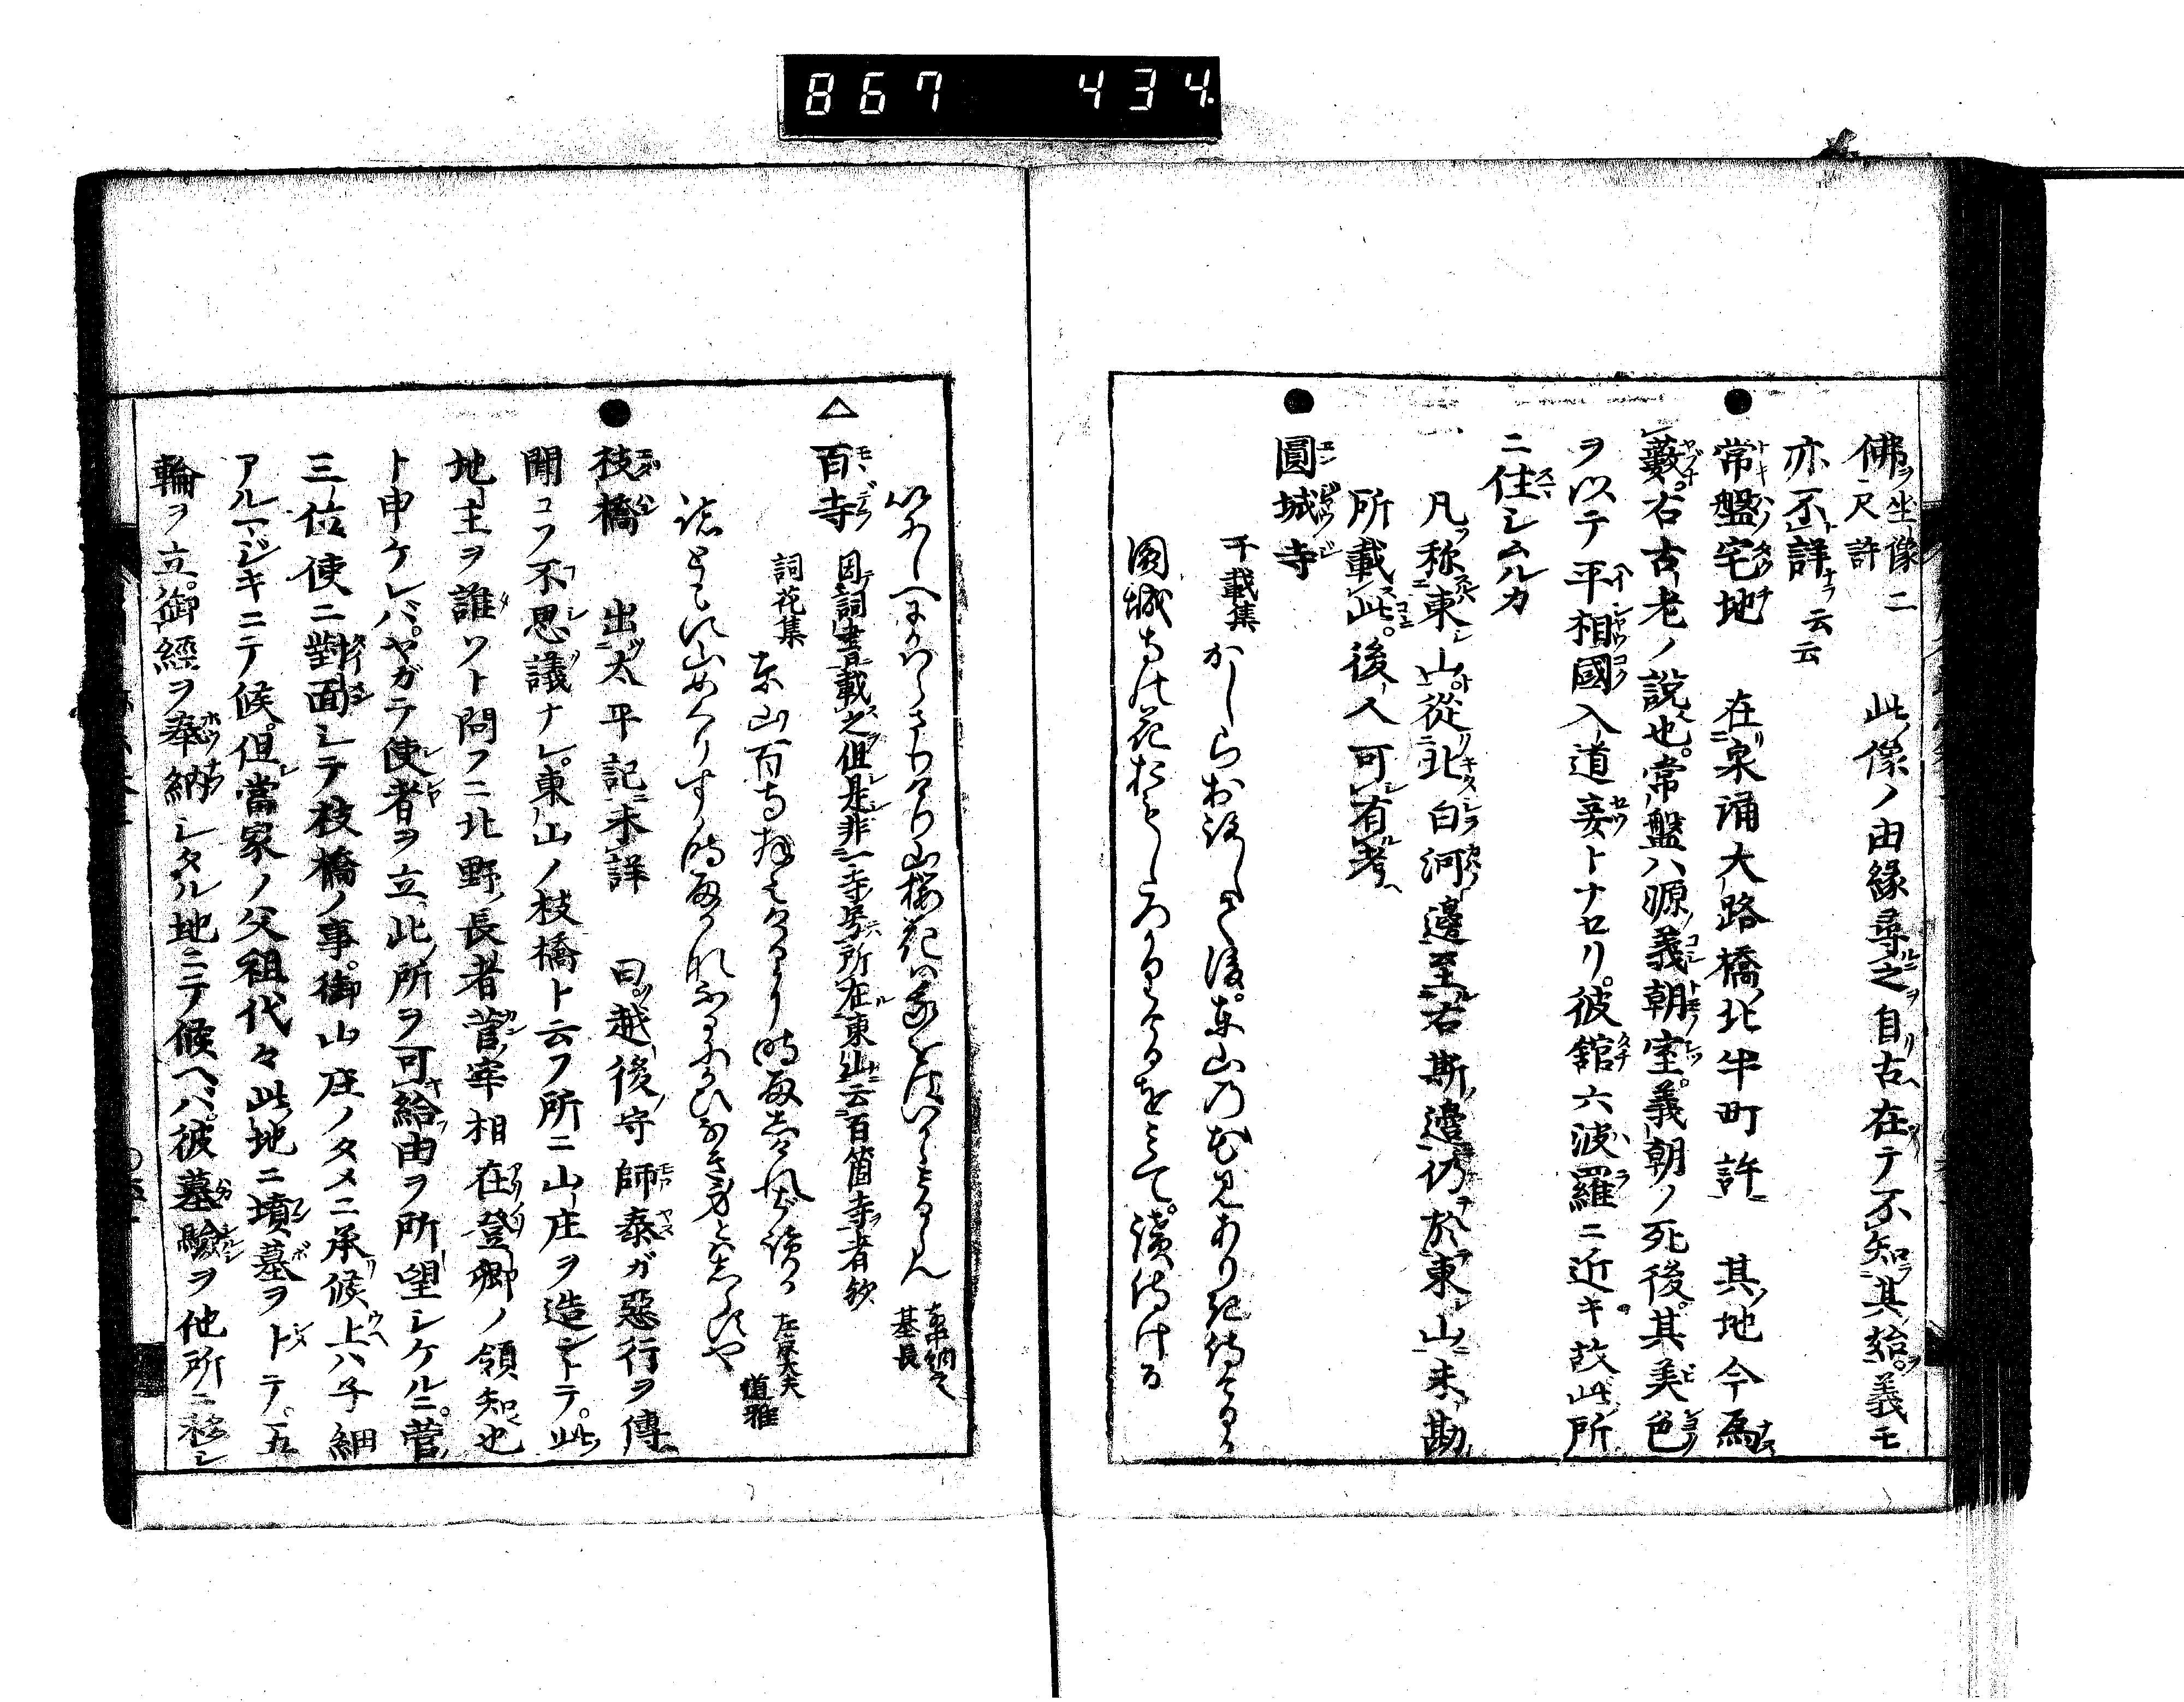 867 434
佛坐像二尺許 此像ノ由縁尋之自古在テ不知其始義モ
亦不詳云云
● 常盤宅地 在泉涌大路橋北半町許 其地今為
藪右古老ノ説也常盤ハ源義朝室義朝ノ死後其美色
ヲ以テ平相國入道妾トナセリ彼舘六波羅ニ近キ故此所
ニ住シムルカ
凡称東山從北白河邊至右斯邉仍於東山未勘
所載此後人可有考
● 圓城寺
千載集 かしらおろして後東山の花見ありき侍けるに
圓城寺の花おもしろかりけるをみて讀侍ける
いにしへにかはらさりけり山櫻花は我をはいかゝみるらん 基長
△ 百寺 因詞書載之但是非一寺号所在東山云百箇寺者歟
詞花集 東山百寺拝み侍けるに時雨しけれは讀る 左京大夫道雅
もろともに山めくりする時雨かなふるにかひなき身とはしらすや
● 枝橋 出太平記未詳 曰越後守師泰ガ惡行ヲ傳
聞コフ不思議ナレ東山ノ枝橋ト云フ所ニ山庄ヲ造ントテ此
地主ヲ誰ソト問フニ北野長者菅宰相在登卿ノ領知也
ト申ケレバヤガテ使者ヲ立此所ヲ可給由ヲ所望シケルニ菅
三位使ニ對面シテ枝橋ノ事御山庄ノタメニ承候上ハ子細
アルマジキニテ候但當家ノ父祖代々此地ニ墳墓ヲトテ五
輪ヲ立御經ヲ奉納シタル地ニテ候ヘバ彼墓驗ヲ他所ニ移シ